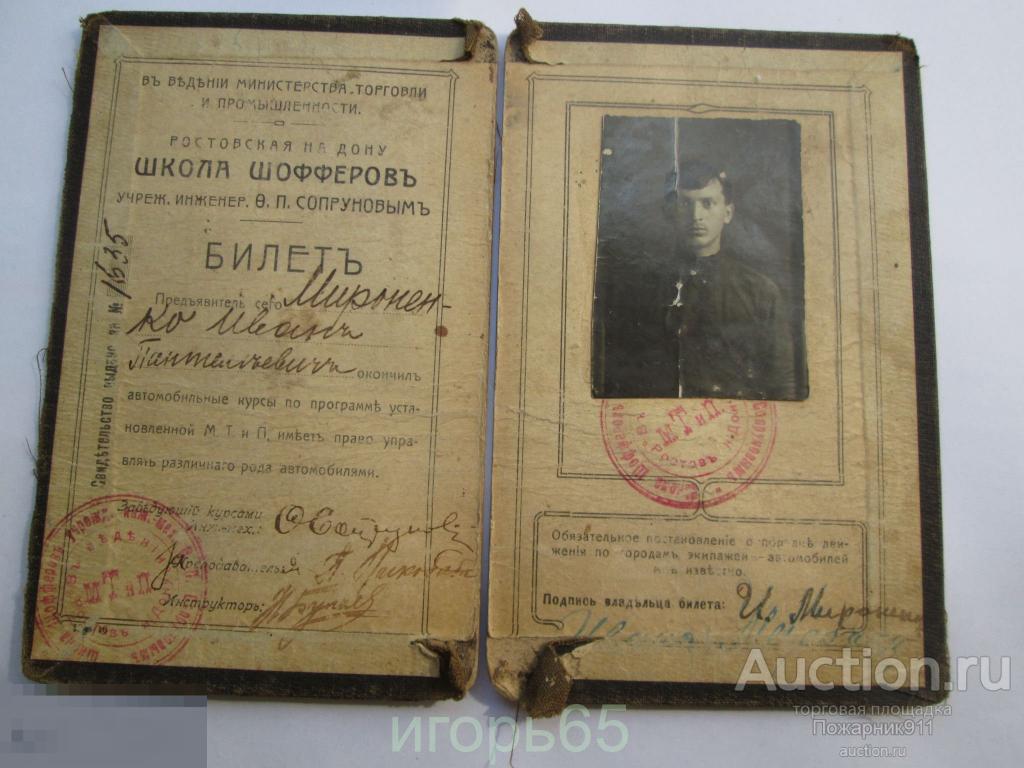 ВЪ ВѢДѢНІИ МИНИСТЕРСТВА ТОРГОВЛИ
И ПРОМЫШЛЕННОСТИ.
РОСТОВСКАЯ НА ДОНУ
ШКОЛА ШОФФЕРОВЪ
УЧРЕЖ. ИНЖЕНЕР. Ѳ. П. СОПРУНОВЫМЪ
БИЛЕТЪ
Свидѣтельство выдано за № 1635
Предъявитель сего Миронен-
ко Иванъ
Пантелѣевичъ окончилъ
автомобильные курсы по программѣ уста-
новленной М. Т. и П. имѣетъ право упра-
влять различнаго рода автомобилями.
Завѣдующій курсами
Инж.-мех.:
Преподаватель:
Инструкторъ:
М Т и П
М Т и П
РОСТОВЪ Н-ДОНУ
Обязательное постановленіе о порядкѣ дви-
женія по городамъ экипажей—автомобилей
мнѣ извѣстно.
Подпись владѣльца билета: Ив. Мироненко
Auction.ru
торговая площадка
Пожарник911
auction.ru
игорь65